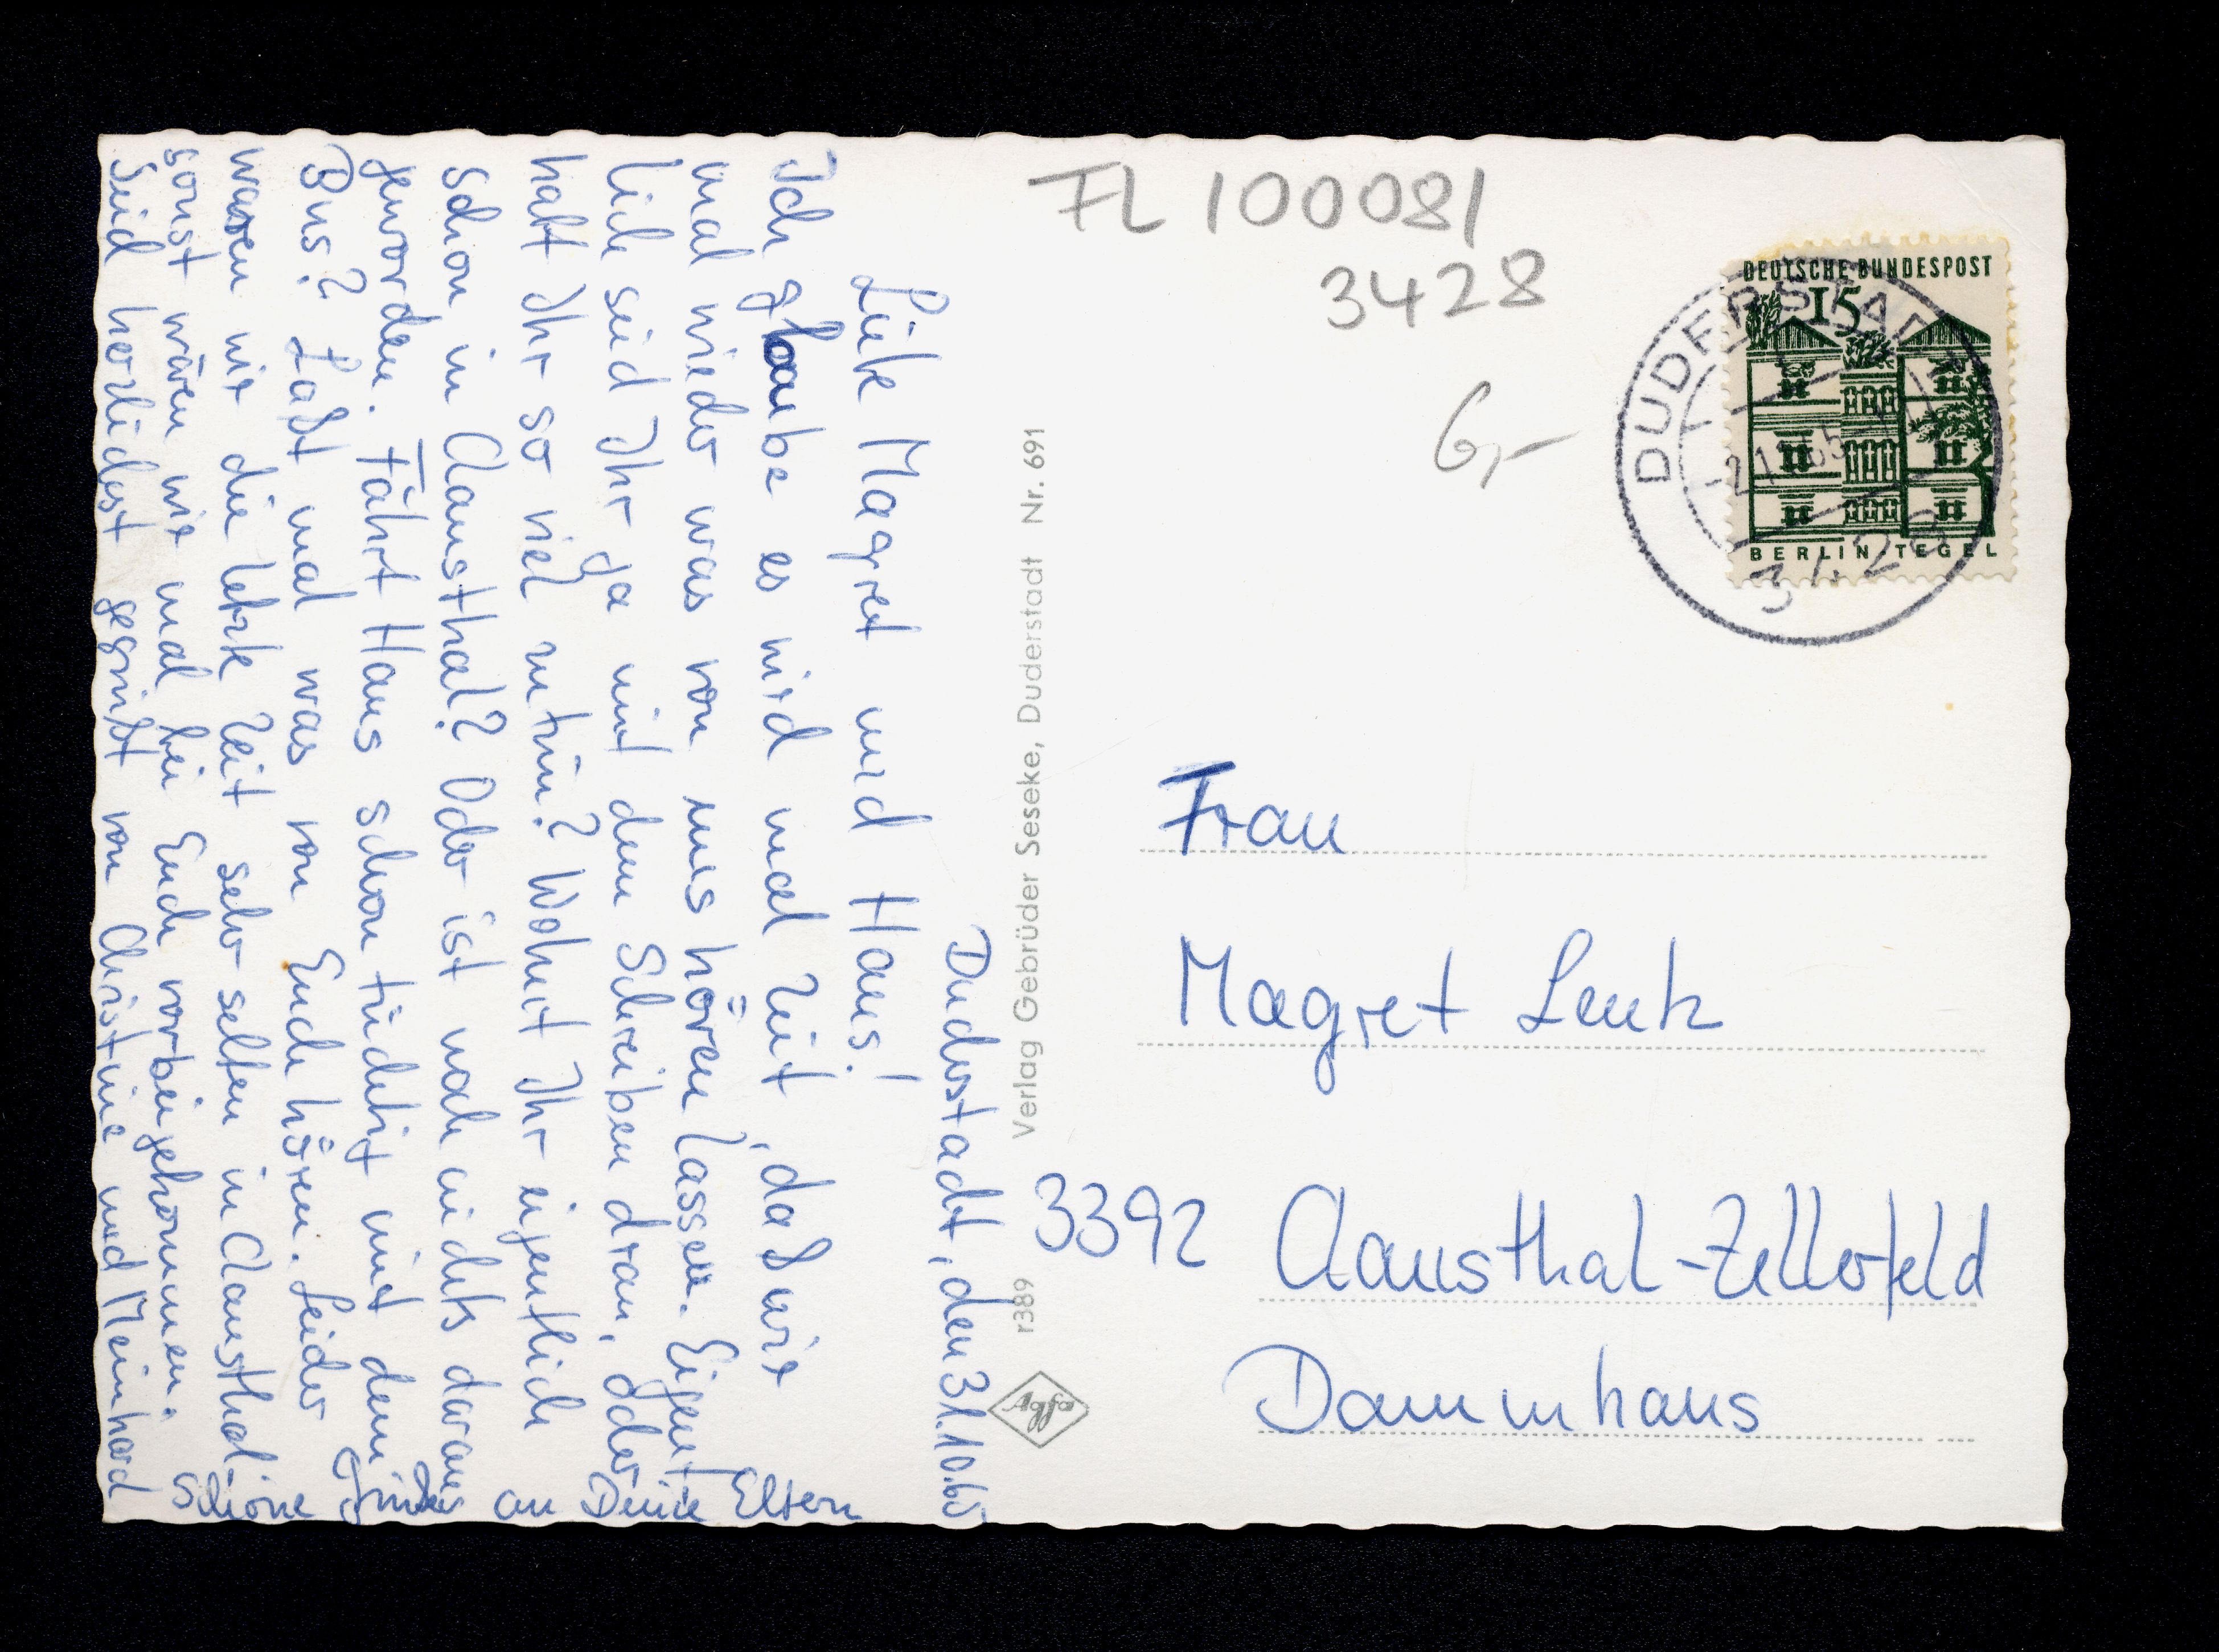 Duderstadt, den 31.10.65
Liebe Magret und Haus!
Ich glaube es wird mal Zeit, daß wir
mal wieder was von uns hören lassen. Eigent
lich seid Ihr ja mit dem Schreiben dran, oder
habt Ihr so viel zu tun? Wohnt Ihr eigentlich
schon in Clausthal? Oder ist noch nichts daraus
geworden. Fährt Haus schon tüchtig mit dem
Bus? Laßt mal was von Euch hören. Leider
waren wir die letzte Zeit sehr selten in Clausthal-
sonst wären wir mal bei Euch vorbeigekommen.
Seid herzlichst gegrüßt von Christine und Meinhard
Schöne Grüße an Deine Eltern
Verlag Gebrüder Seseke, Duderstadt Nr. 691
r389
Agfa
FL 100081
3428
6,-
DEUTSCHE BUNDESPOST
15
BERLIN TEGEL
DUDERSTADT
Frau
Magret Lenk
3392 Clausthal-Zellerfeld
Dammhaus